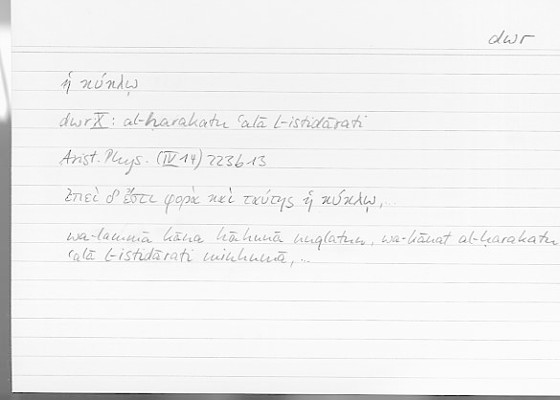 dwr
ἡ κύκλῳ
dwr X : al-ḥarakatu ʿalā l-istidārati
Arist. Phys. (IV 14) 223b13
ἐπεὶ δ᾽ ἔστι φορὰ καὶ ταύτης ἡ κύκλῳ,...
wa-lammā kāna hāhunā nuqlatun, wa-kānat al-ḥarakatu
ʿalā l-istidārati minhumā,...